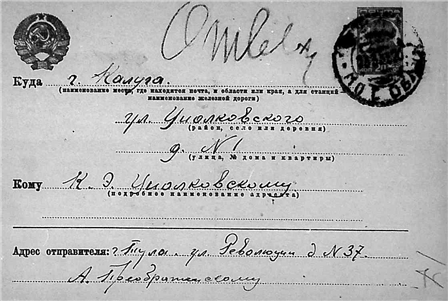 Ответ
Куда г. Калуга.
(наименование места, где находится почта, и области или края, а для станций
наименование железной дороги)
ул. Циолковского
(район, село или деревня)
д. №1
(улица, № дома и квартиры)
Кому К. Э. Циолковскому
(подробное наименование адресата)
Адрес отправителя: г. Тула. ул. Революции д №37.
А. Преображенскому